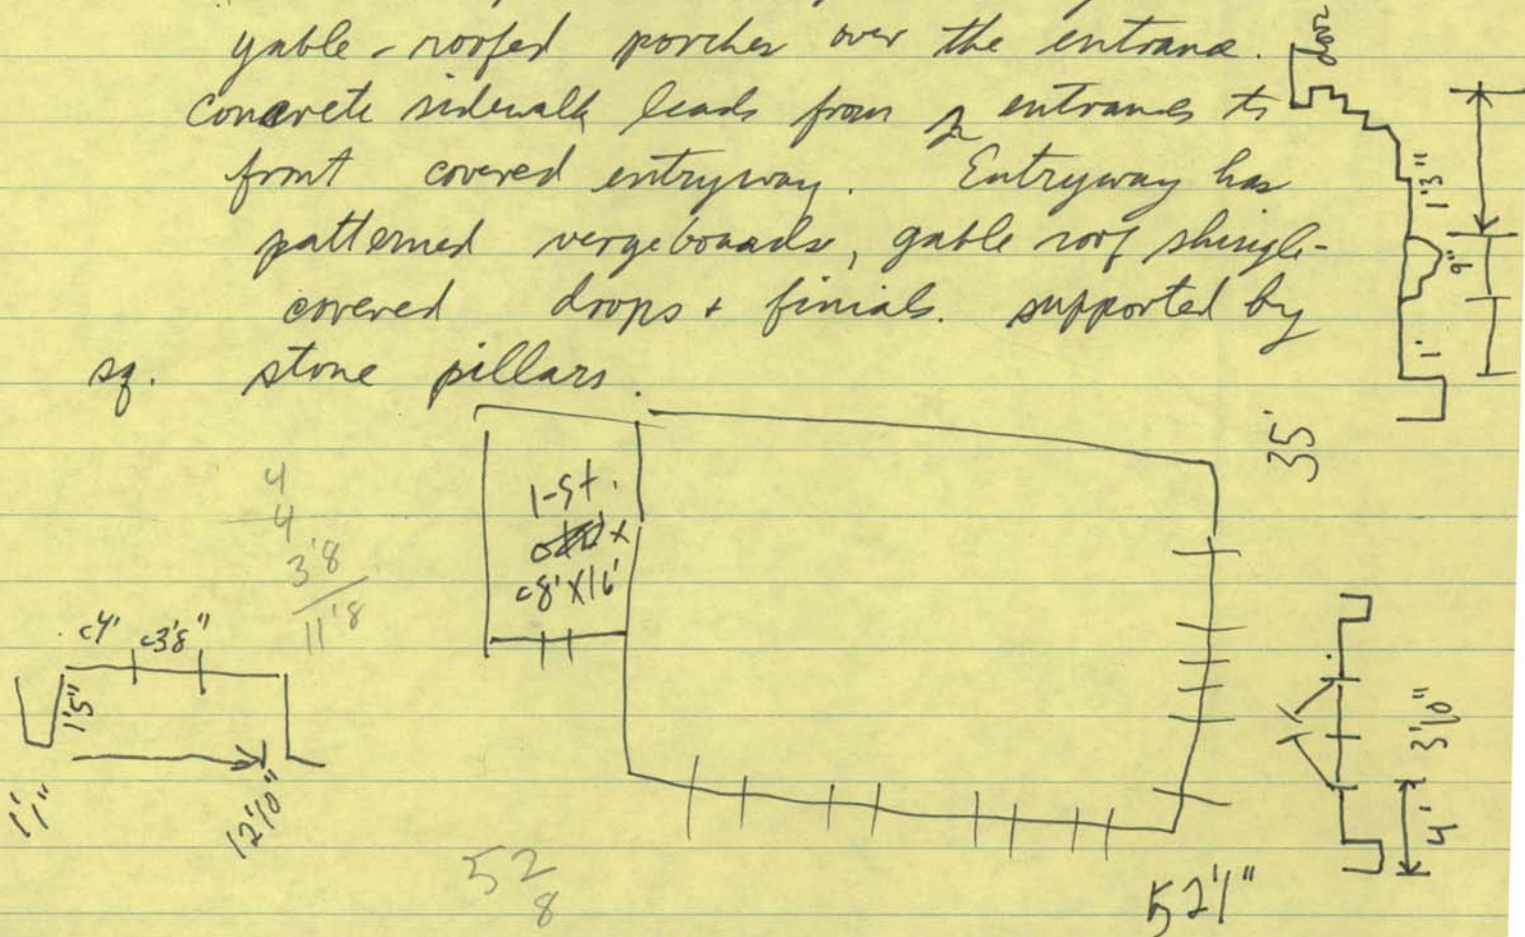 gable-roofed porches over the entrance.
concrete sidewalk leads from entrances to
front covered entryway. Entryway has
patterned vergeboards, gable roof shingle-
covered drops + finials. supported by
sq. stone pillars.
door
1'3"
9"
1'
35'
1-St.
c8'X16'
4
4
3'8
11'8
c4' c3'8"
1'5"
1'1"
12'10"
3'10"
4'
52
8
52'1"